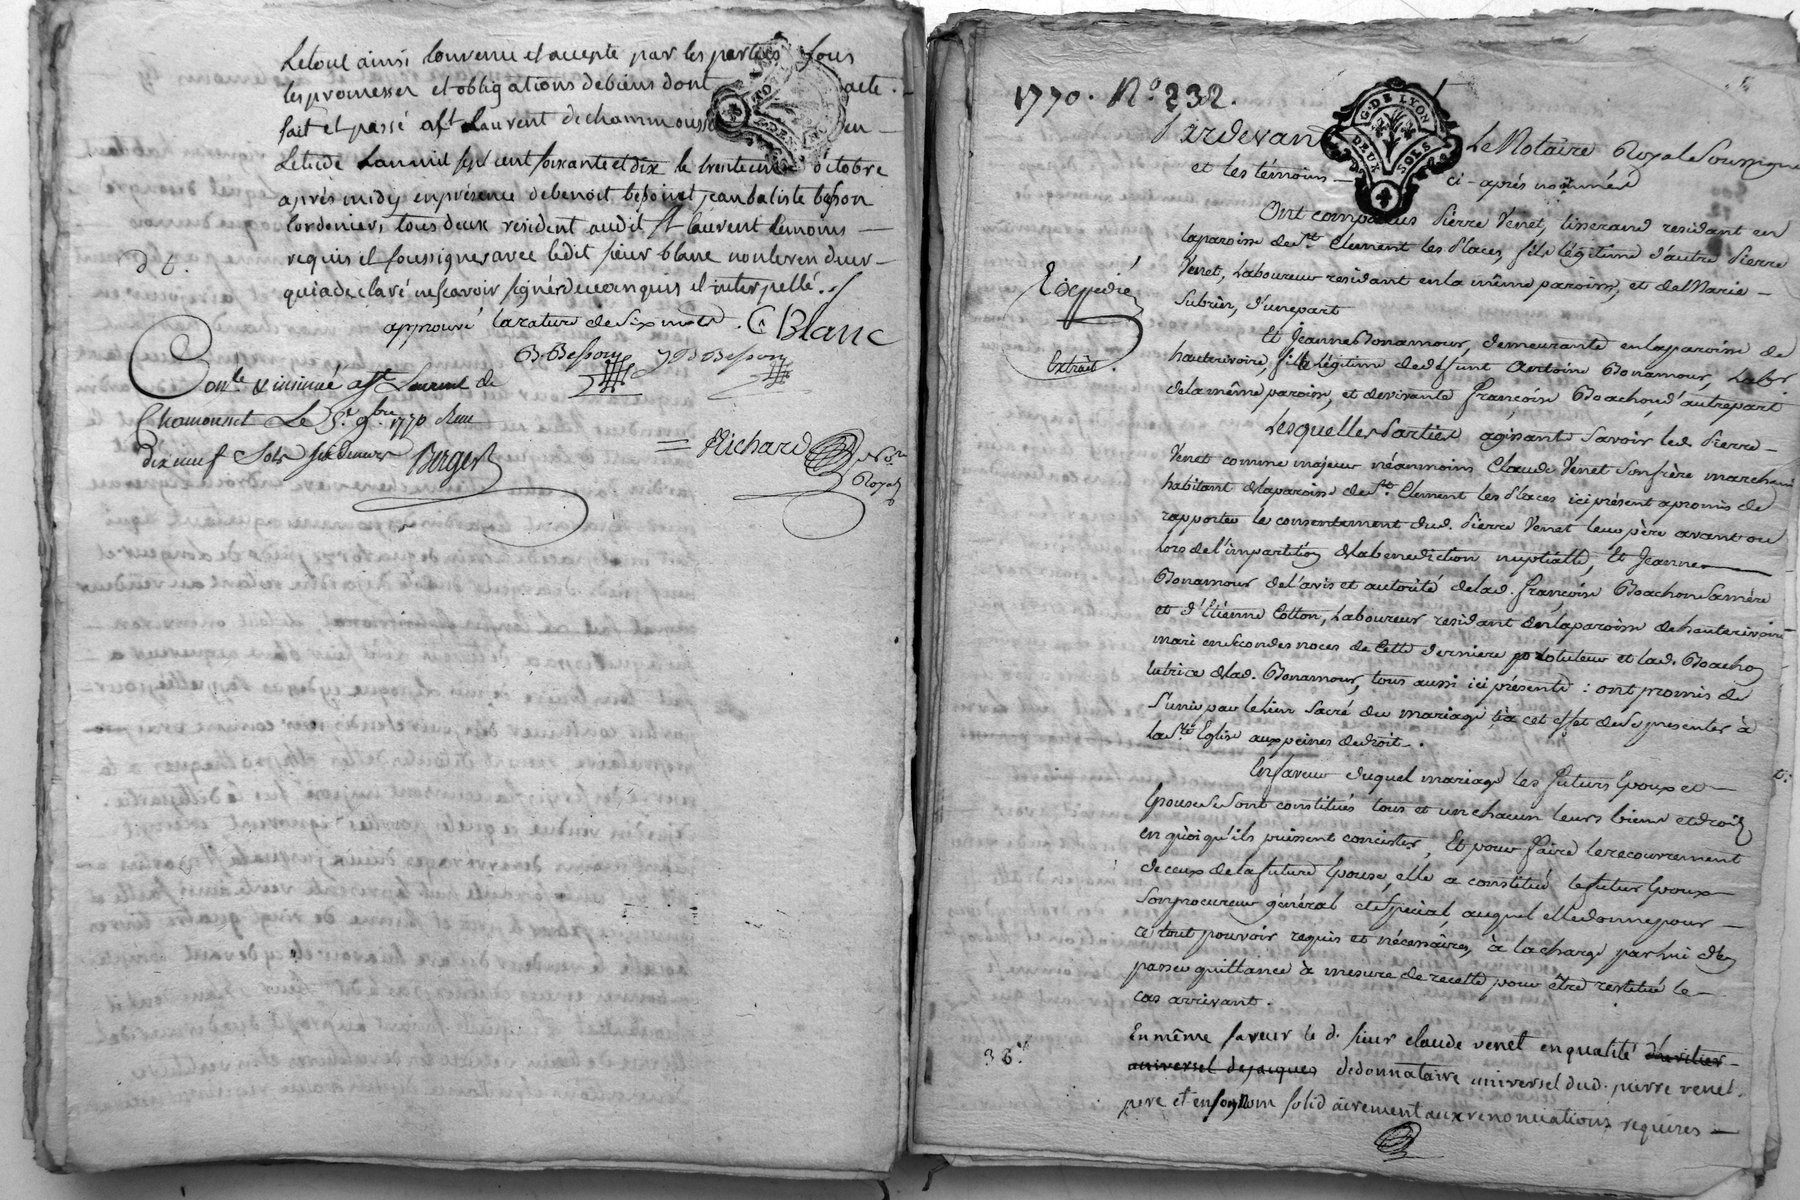 Le tout ainsi convenu et accepté par les parties sous
les promesses et obligations de biens dont acte.
fait et passé a St Laurent de chammousset en
Letude Lan mil sept cent soixante et dix le trente un octobre
après midy en présence de benoit besson et jean batiste besson
Cordoniers tous deux resident audit St laurent temoins
requis et soussignés avec ledit sieur blanc non le vendeur
qui a declaré ne scavoir signer de ce enquis et interpellé.
approuvé la rature de six mots. C Blanc
B. Besson J B Besson
Conlé & insinué a St Laurent de
Chamousset Le 5e 9bre 1770 Reçu
dix neuf sols six deniers Berger
Richard No.re
Royal
1770. No. 232.
G. DE LYON
DEUX SOLS
Pardevant Le Notaire Royal Soussigné
et les témoins ci-après nommés
Ont comparus Pierre Venet, tisserand residant en
la paroisse de St. Clement les Places, fils légitime d'autre Pierre
Venet, Laboureur residant en la même paroisse, et de Marie
Subrin, d'une part
Et Jeanne Bonamour, demeurante en la paroisse de
hauterivoire, fille légitime de defunt Antoine Bonamour, Labr
de la même paroisse, et de vivante Françoise Bachon d'autre part
Expedié
Extrait.
Lesquelles Parties agissant savoir led. Pierre
Venet comme majeur néanmoins Claude Venet son frère marchand
habitant de la paroisse de St. Clement les Places ici présent a promis de
rapporter le consentement dud. Pierre Venet leur père avant ou
lors de l'impartition de la benediction nuptialle, Et Jeanne
Bonamour de l'avis et autorité de lad. Françoise Bachon sa mère
et d'Etienne Cotton, Laboureur residant en la paroisse de hauterivoire
mari en secondes noces de cette derniere protuteur et lad. Bachon
tutrice de lad. Bonamour, tous aussi ici présents : ont promis de
s'unir par le lien sacré du mariage & à cet effet de se presenter à
la Ste. Eglise aux peines de droit.
En faveur duquel mariage les futurs Epoux et
Epouse se sont constitués tous et un chacun leurs biens et droits
en quoi qu'ils puissent concister, Et pour faire le recouvrement
de ceux de la future Epouse, elle a constitué le futur Epoux
son procureur général et spécial, auquel elle donne pour
ce tout pouvoir requis et nécessaires, à la charge par lui d'en
passer quittance à mesure de recette pour être restitué le
cas arrivant.
En même faveur le d. sieur claude venet en qualité d'heritier
universel de jacques de donnataire universel dud. pierre venet
pere et en son nom solidairement aux renonciations requises